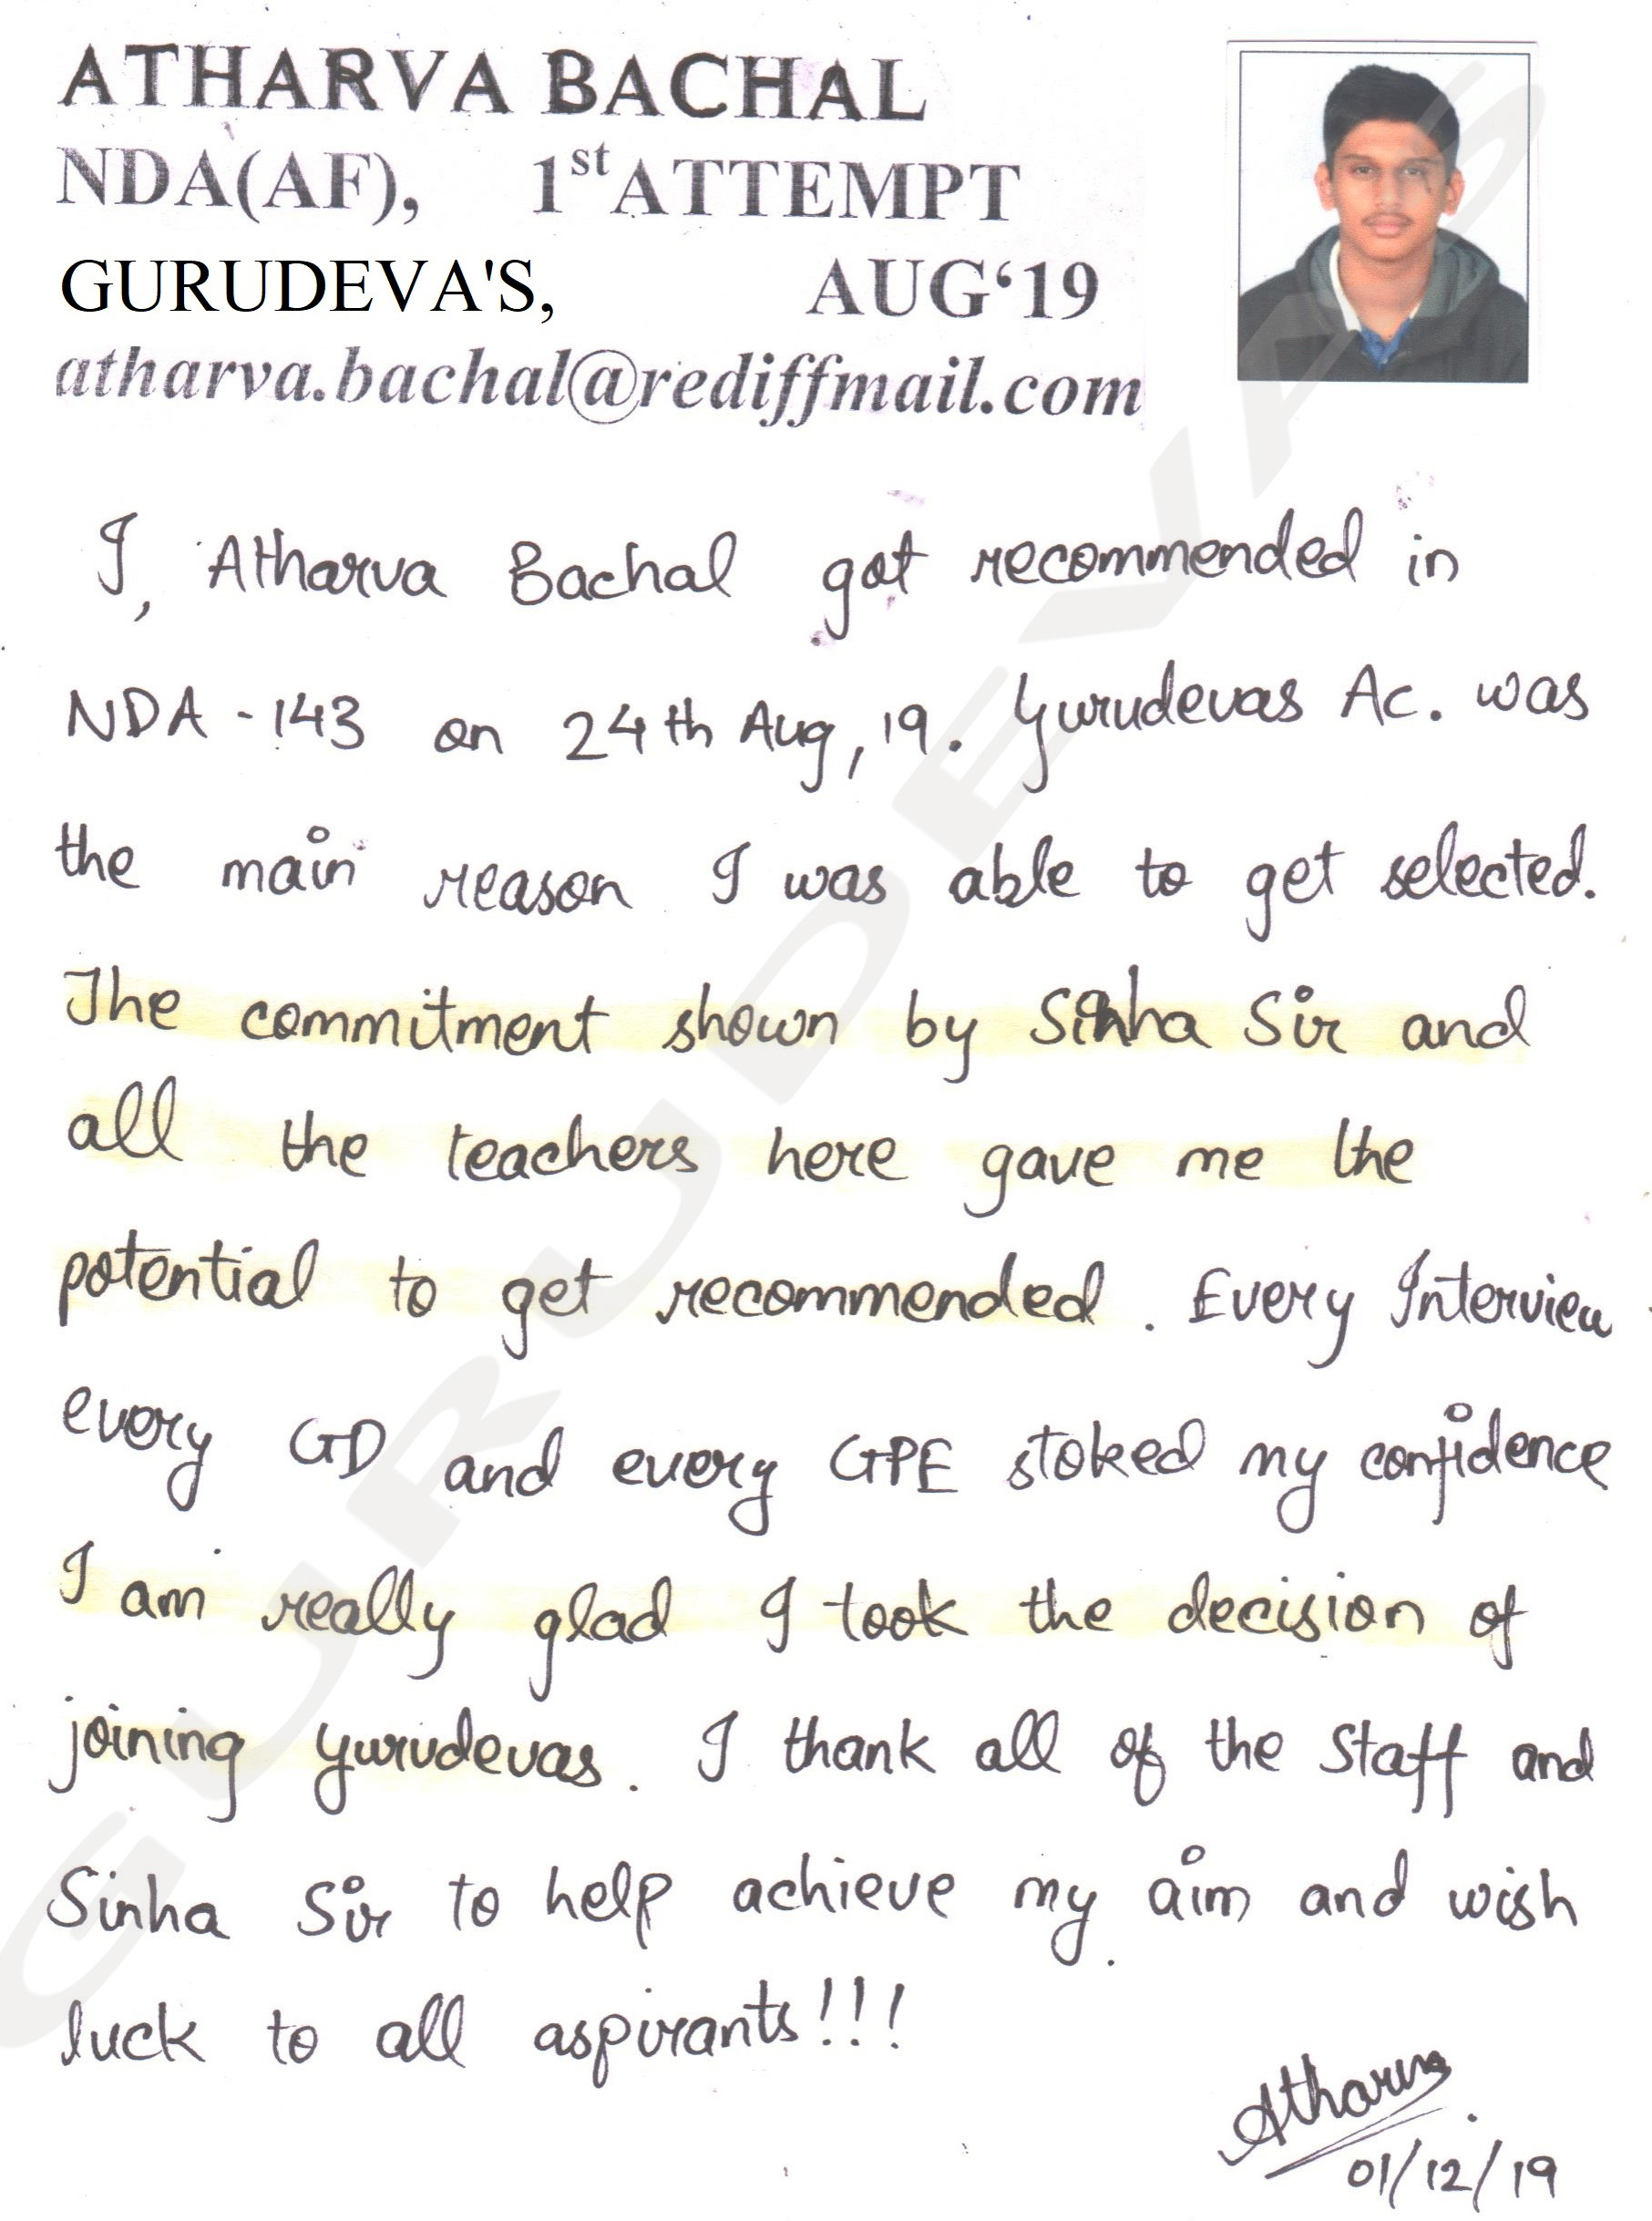 ATHARVA BACHAL
NDA(AF), 1st ATTEMPT
GURUDEVA'S, AUG‘19
atharva.bachal@rediffmail.com
I, Atharva Bachal got recommended in
NDA - 143 on 24th Aug, 19. Gurudevas Ac. was
the main reason I was able to get selected.
The commitment shown by Sinha Sir and
all the teachers here gave me the
potential to get recommended. Every Interview
every GD and every GPE stoked my confidence
I am really glad I took the decision of
joining Gurudevas. I thank all of the Staff and
Sinha Sir to help achieve my aim and wish
luck to all aspirants!!!
Atharva
01/12/19
GURUDEVAS